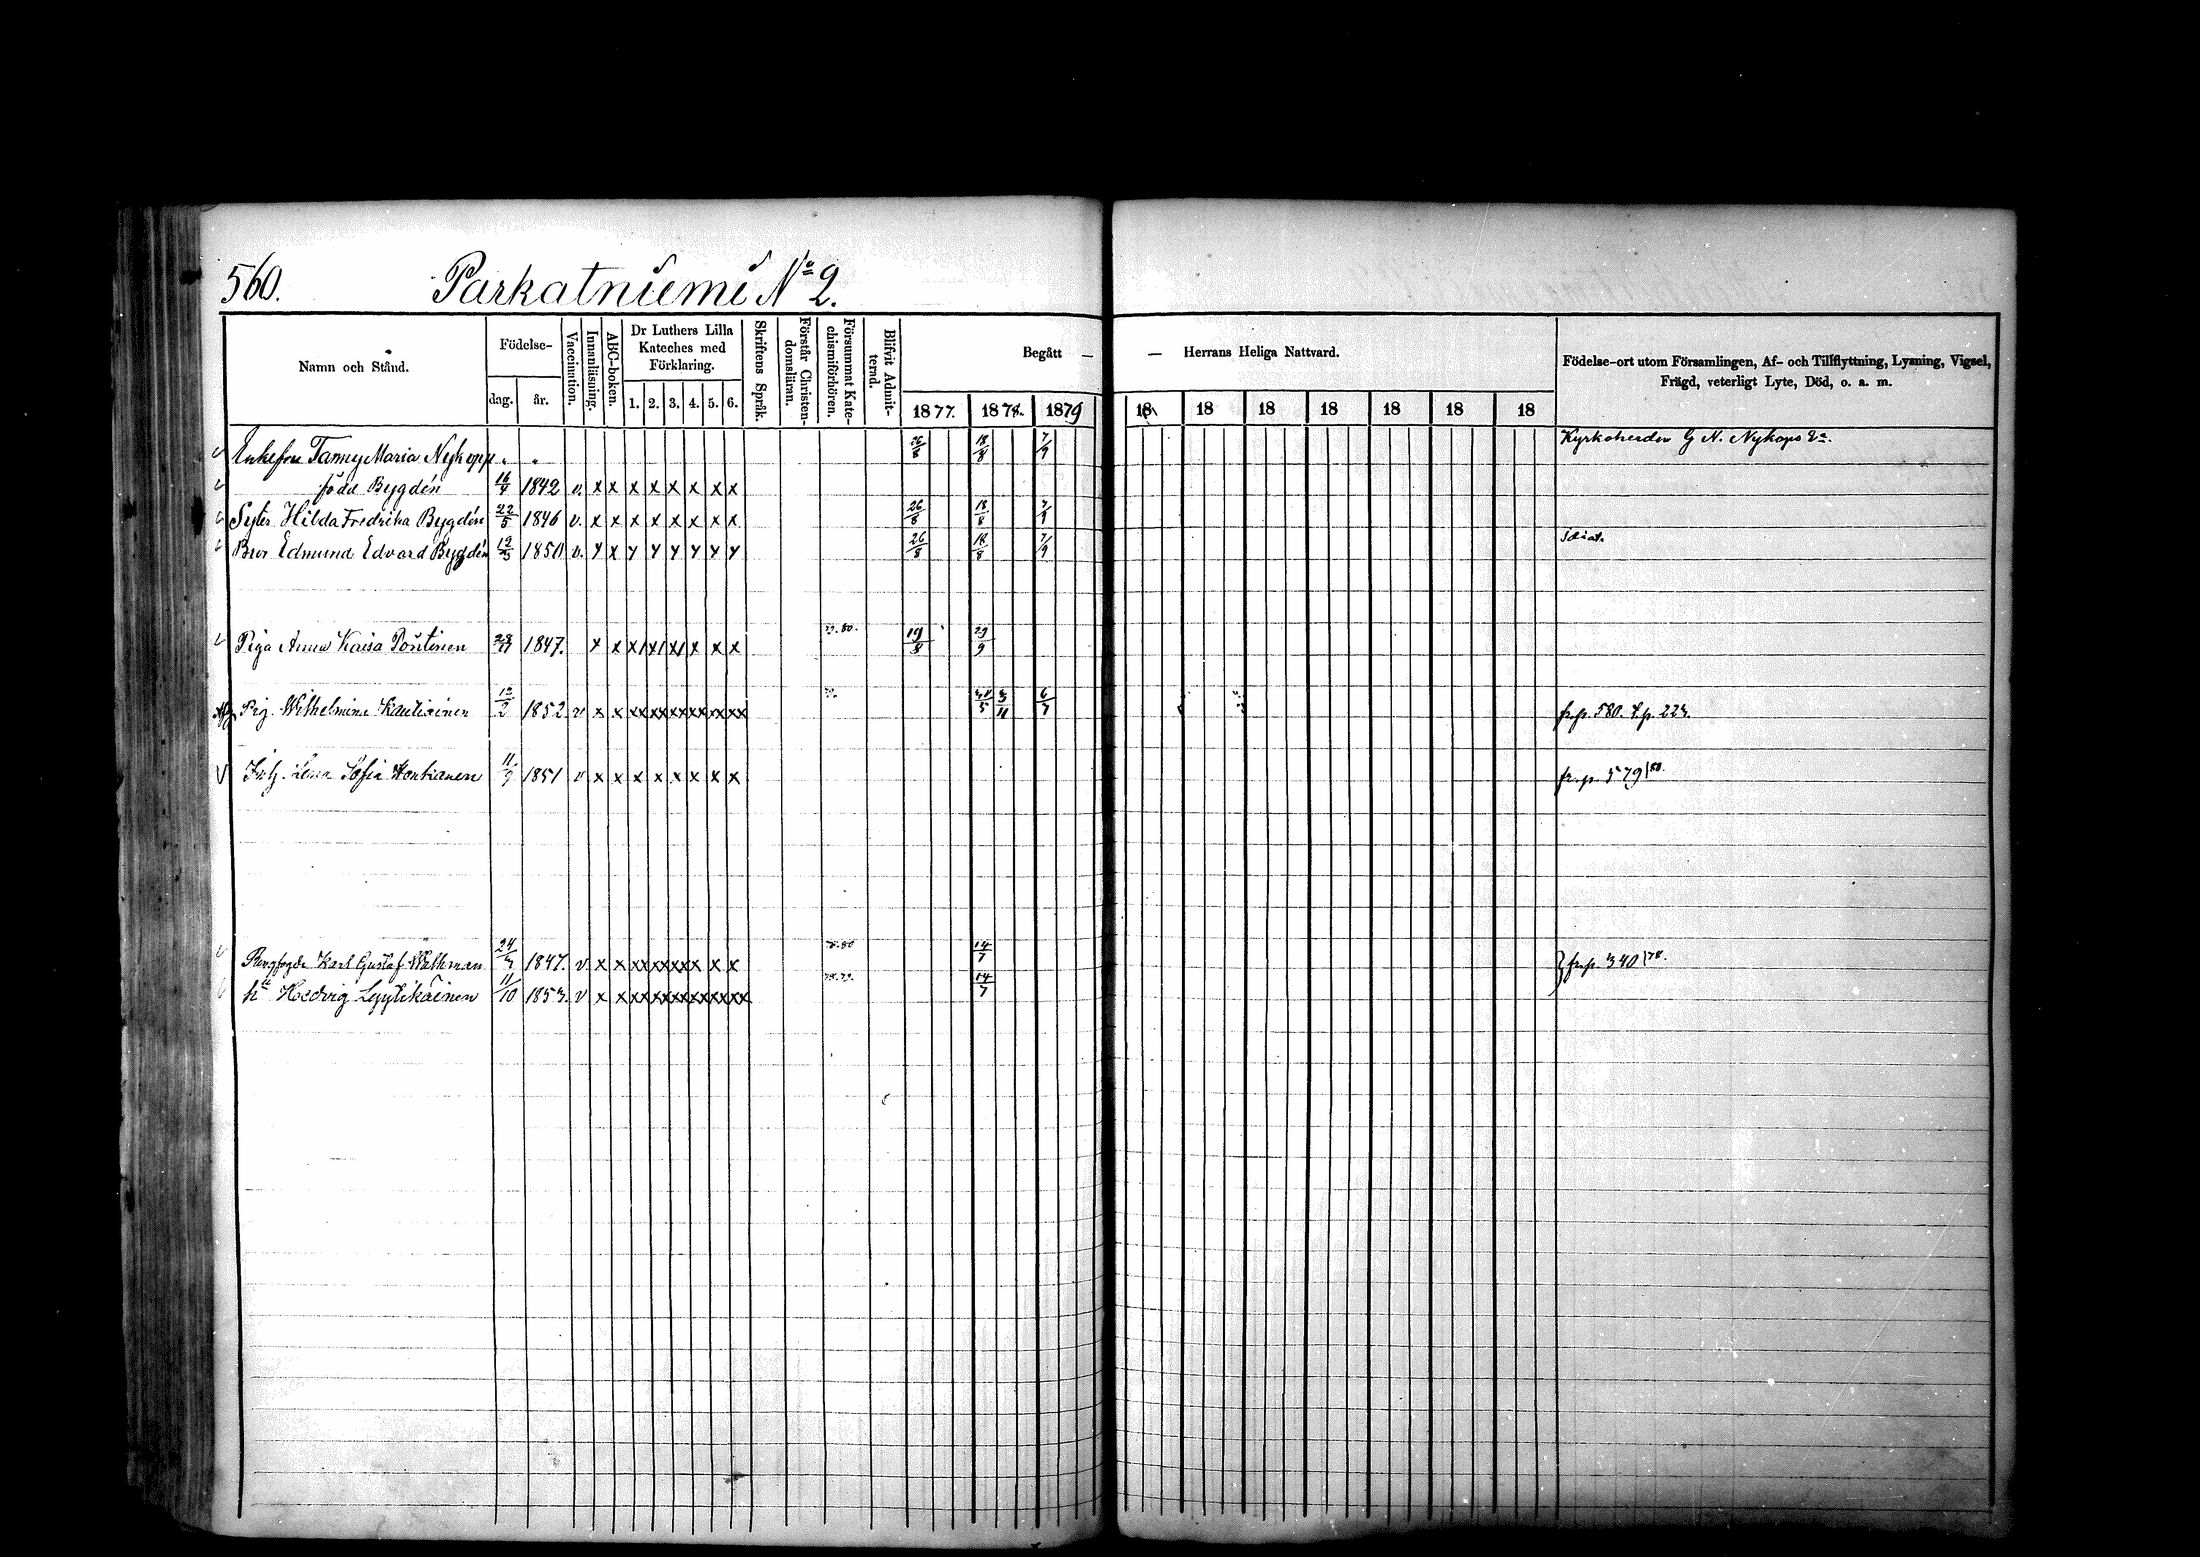 560. Parkatniemi No 2.
Namn och Stånd. Födelse- dag. år. Vaccination. Innanläsning. ABC-boken. Dr Luthers Lilla Kateches med Förklaring. 1. 2. 3. 4. 5. 6. Skriftens Språk. Förstår Christendomsläran. Försummat Katechismiförhören. Blifvit Admitterad. Begått — — Herrans Heliga Nattvard. Födelse-ort utom Församlingen, Af- och Tillflyttning, Lysning, Vigsel,
Frägd, veterligt Lyte, Död, o. a. m.
1877. 1878. 1879 18 18 18 18 18 18 18
Enkefru Fanny Maria Nykopp 26/8 18/8 7/9 Kyrkoherden G N. Nykops
född Bygdén 16/4 1842 v. x x x x x x x x
Syster Hilda Fredrika Bygdén 22/5 1846 v. x x x x x x x x 26/8 18/8 7/9
Bror Edmund Edvard Bygdén 1850 v. 26/8 18/8 7/9 Idiot.
Piga Anna Kaisa Pöntinen 1847. x x x x x x x x 80. 19/8 29/9
Pig. Wilhelmina 12/2 1852 v x x xx xx xx xx xx xx 3/11 6/7 fr.p. 580. t.p. 223.
Lena Sofia 1851 v x x x x x x x x fr.p. 579/80.
Karl Gustaf 1847. v x x xx xx xx xx x x 78.80 14/7 fr.p. 340/78.
h:u Hedvig Lyytikäinen 11/10 1853. v x x xx xx xx xx xx xx 78.79. 14/7